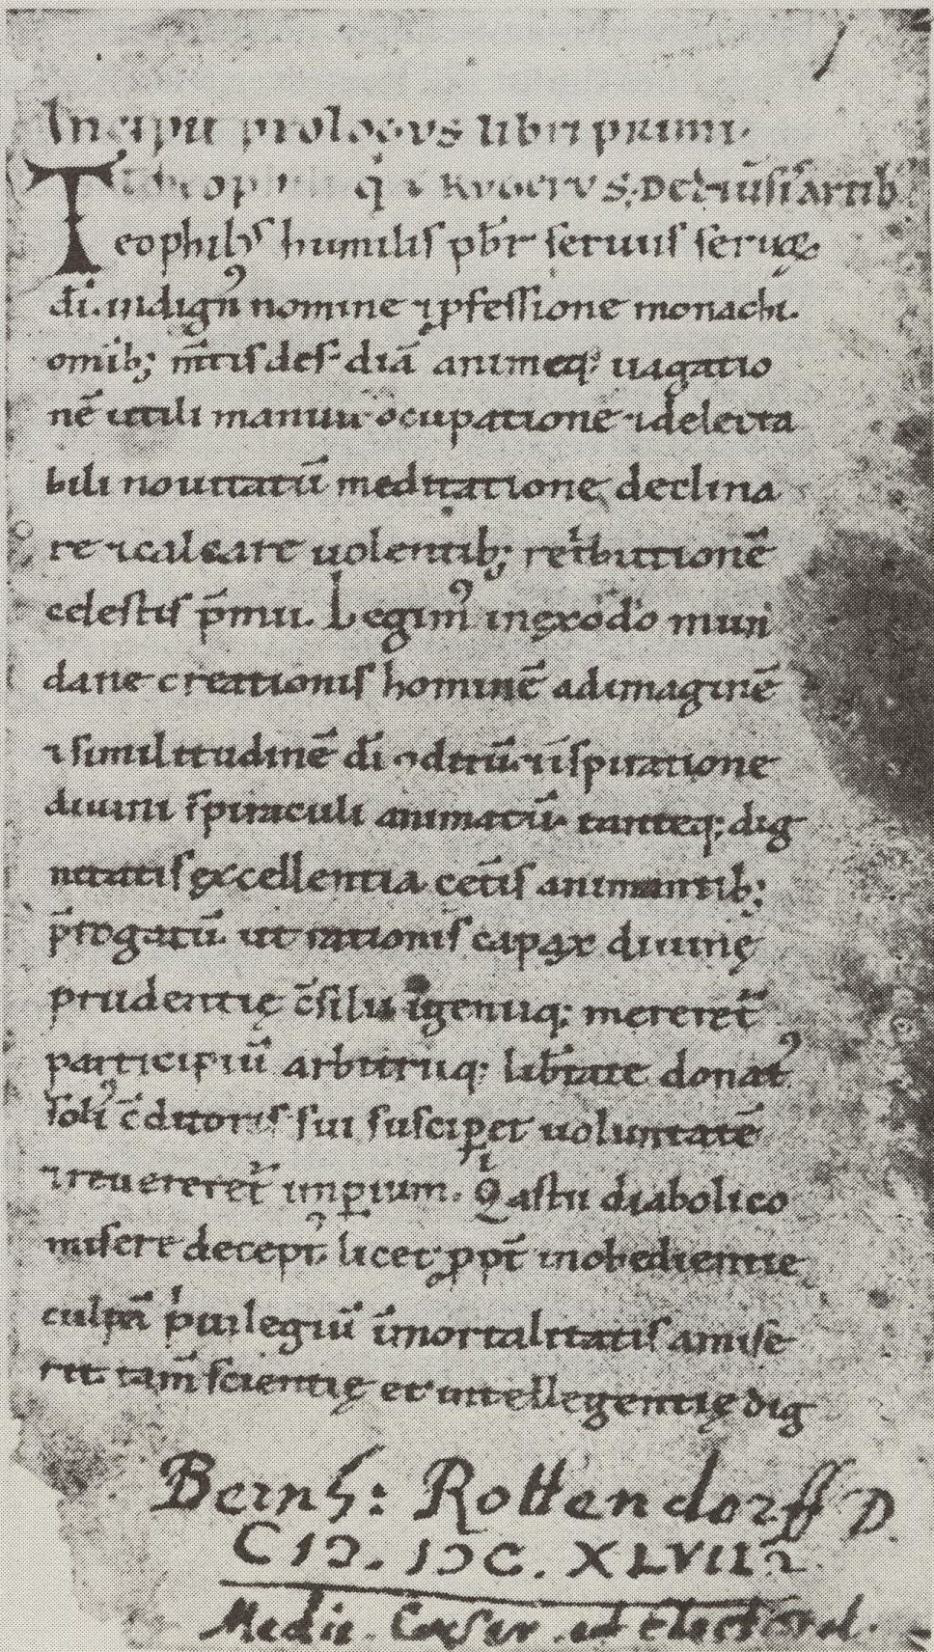 Incipit prologus libri primi.
Theophili q̇ ⁊ Rugerus. De diūsis artib
Teophilꝰ humilis pb̄r seruus seruoꝝ
d̄i. indignꝰ nomine ⁊ ꝓfessione monachi.
omīb; m̄tis des̄diā animeq; uagatio
nē utili manuū occupatione. ⁊ delecta
bili nouitatū meditatione, declina
re ⁊ calcare uolentib; ret̄butionē
celestis p̄mii. Legimꝰ in exodo mun
dane creationis hominē ad imaginē
⁊ similitudinē d̄i ꝯditū. ⁊ īspiratione
diuini spiraculi animatū. tanteq; dig
nitatis excellentia cet̄is animantib;
p̄rogatū. ut rationis capax diuinę
prudentię c̄silii īgeniiq; mereret᷑
participiū arbitriiq; lib̄tate donatꝰ
solꝰ c̄ditoris sui susciꝑet uoluntatē
⁊ reuereret᷑ imꝑium. Qͥ astu diabolico
misere deceptꝰ. licet ꝓpt̄ inobedientie
culpā pͥuilegiū īmortalitatis amise
rit. tam̄ scientię et intellegentię dig
Bernh: Rottendorff D.
CIↃ. IↃC. XLVII
Medic. Caesar. ad elect